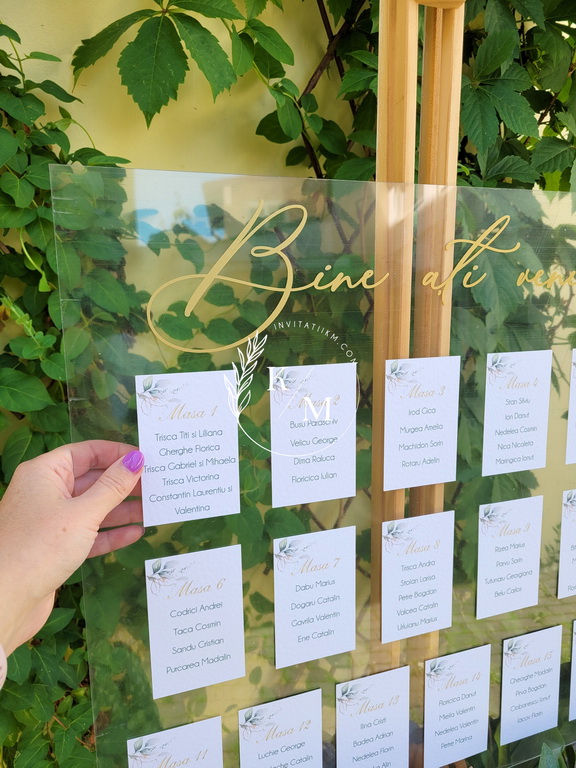 Bine ati
INVITATIIKM.COM
K M
Masa 1
Trisca Titi si Liliana
Gherghe Florica
Trisca Gabriel si Mihaela
Trisca Victorina
Constantin Laurentiu si
Valentina
Busu Paraschiv
Velicu George
Dima Raluca
Floricica Iulian
Masa 3
Irod Gica
Mugrea Amelia
Machidon Sorin
Rotaru Adelin
Masa 4
Stan Silviu
Ion Danut
Nedelea Cosmin
Nica Nicoleta
Mongica Ionut
Masa 6
Codrici Andrei
Taca Cosmin
Sandu Cristian
Purcarea Madalin
Masa 7
Dabu Marius
Dogaru Catalin
Gavrila Valentin
Ene Catalin
Masa 8
Trisca Andra
Stoian Larisa
Petre Bogdan
Valcea Catalin
Uluianu Marius
Masa 9
Panea Marius
Panju Sorin
Tutunaru Georgiana
Belu Carlos
Masa 11
Masa 12
Luchie George
Catalin
Masa 13
Ilina Cristi
Badea Adrian
Nedelea Florin
Joita Catalin
Masa 14
Floricica Danut
Mirela Valentin
Nedelea Valentin
Petre Marina
Masa 15
Gheorghe Madalin
Pirvu Bogdan
Ciobanescu Ionut
Iancu Florin